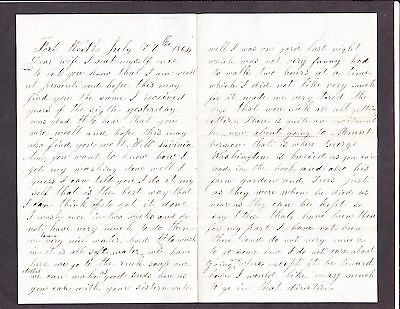 Fort Worth July 27th 1864
Dear wife I seat myself once
to let you know that I am well
at present and hope this may
find you the same I received
yours of the eighth yesterday
was glad to hear that you
were well and hope this may
also find you well. Well
Ann you want to know how I
get my washing done well I
guess I can tell you I do it my
self that is the best way that
I can think of to get it done
I wash once in two weeks and do
not have very much to do then
we have very nice water hard to wash
in it is all soft water we
have we go to the creek soap our
clothes we can make as good suds here as
you can with your cistern water
well I was on gard last night
which was not very funny had
to walk two hours at a time
which I did not like very much
for it made me very tired the
boys that were sick are all getting
better. There is quite an excitement
here now about going to Mount
vernon that is where George
Washington is buried as you can
read in the book and also his
farm gardens and Trees just
as they were when he died as
near as they can be kept so
say them thats have been there
for my part I have not been
there and do not care very much
to go some how I do not care about
going any where except it be toward
home I would like very much
to go in that direction